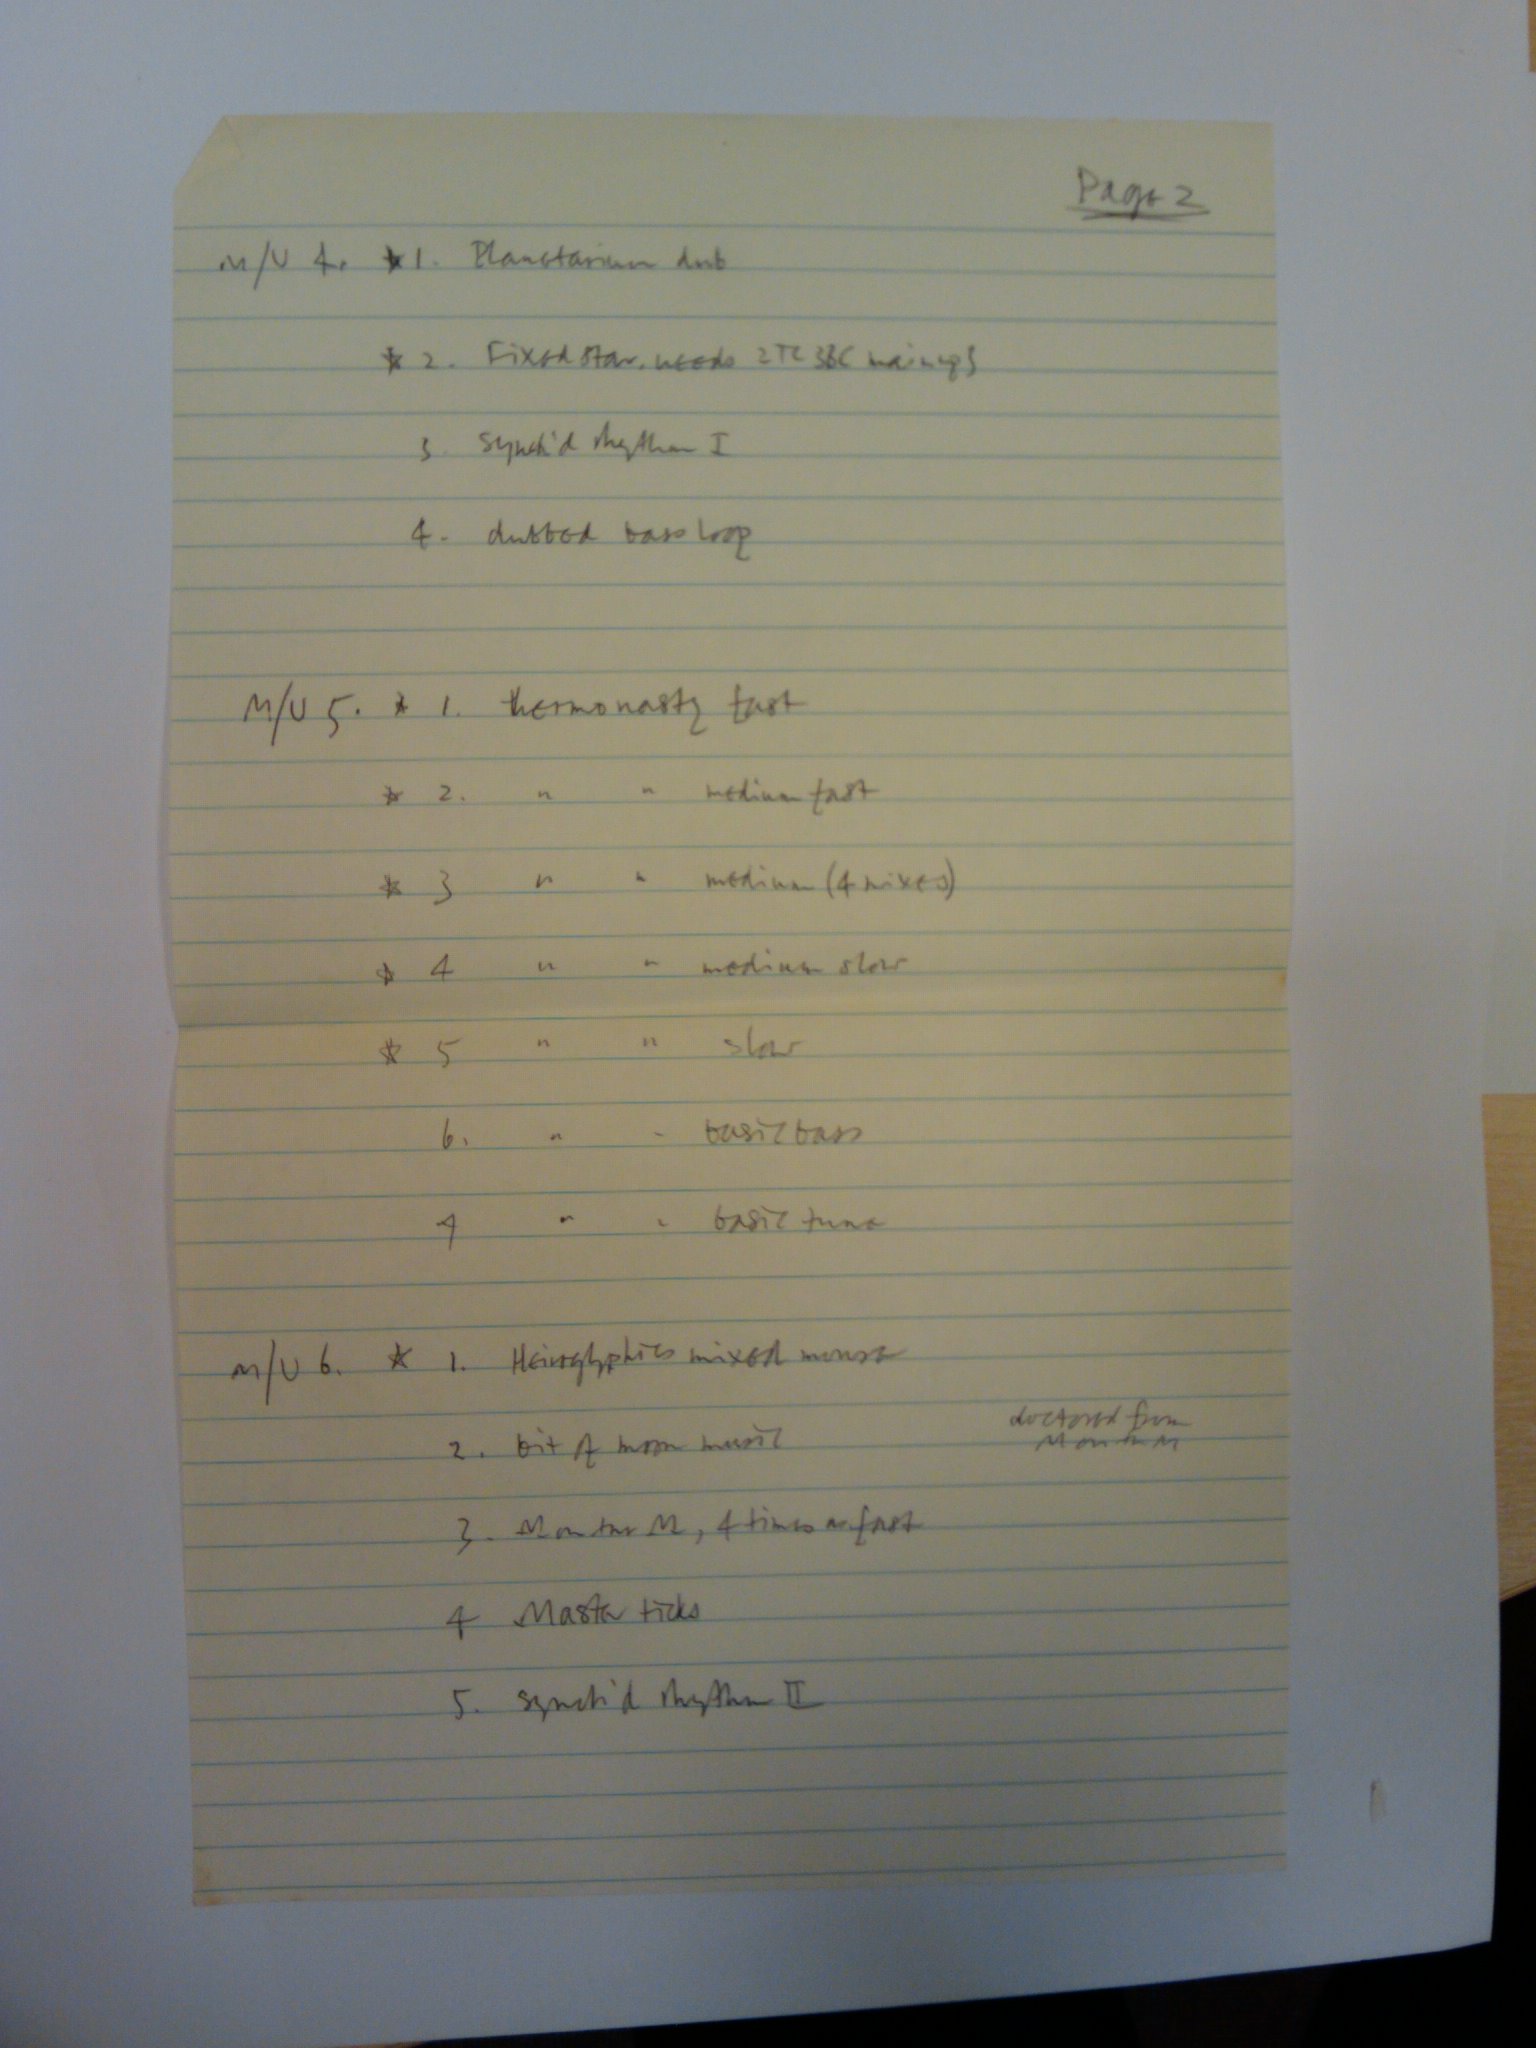 Page 2
M/U 4. * 1. Planetarium dub
* 2. Fixed star. needs
3. synch'd rhythm I
4. dubbed bass loop
M/U 5. * 1. thermonasty fast
* 2. " " medium fast
* 3 " " medium (4 mixes)
* 4 " " medium slow
* 5 " " slow
6. " " basic bass
7 " " basic tune
M/U 6. * 1. Heiroglyphics mixed
doctored from
2. bit of moon music
3. M, 4 times as fast
4 Master ticks
5. synch'd rhythm II